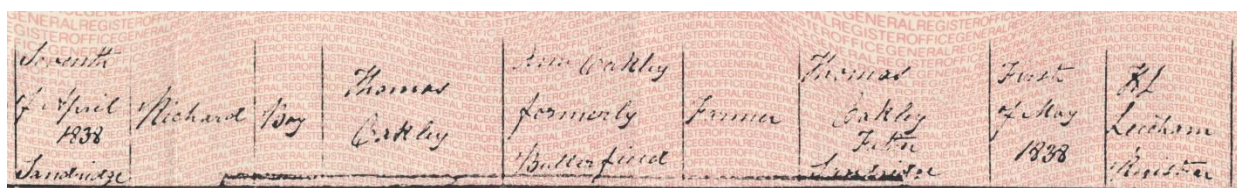 Seventh
of April
1838
Sandridge
Richard
Boy
Thomas
Oakley
Ann Oakley
formerly
Butterfield
Farmer
Thomas
Oakley
Father
Sandridge
First
of May
1838
Registrar